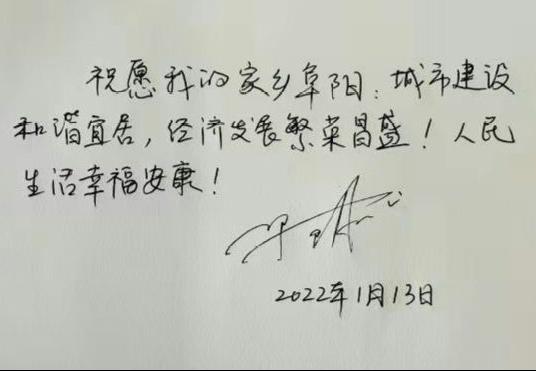 祝愿我的家乡阜阳：城市建设
和谐宜居，经济发展繁荣昌盛！人民
生活幸福安康！
2022年1月13日